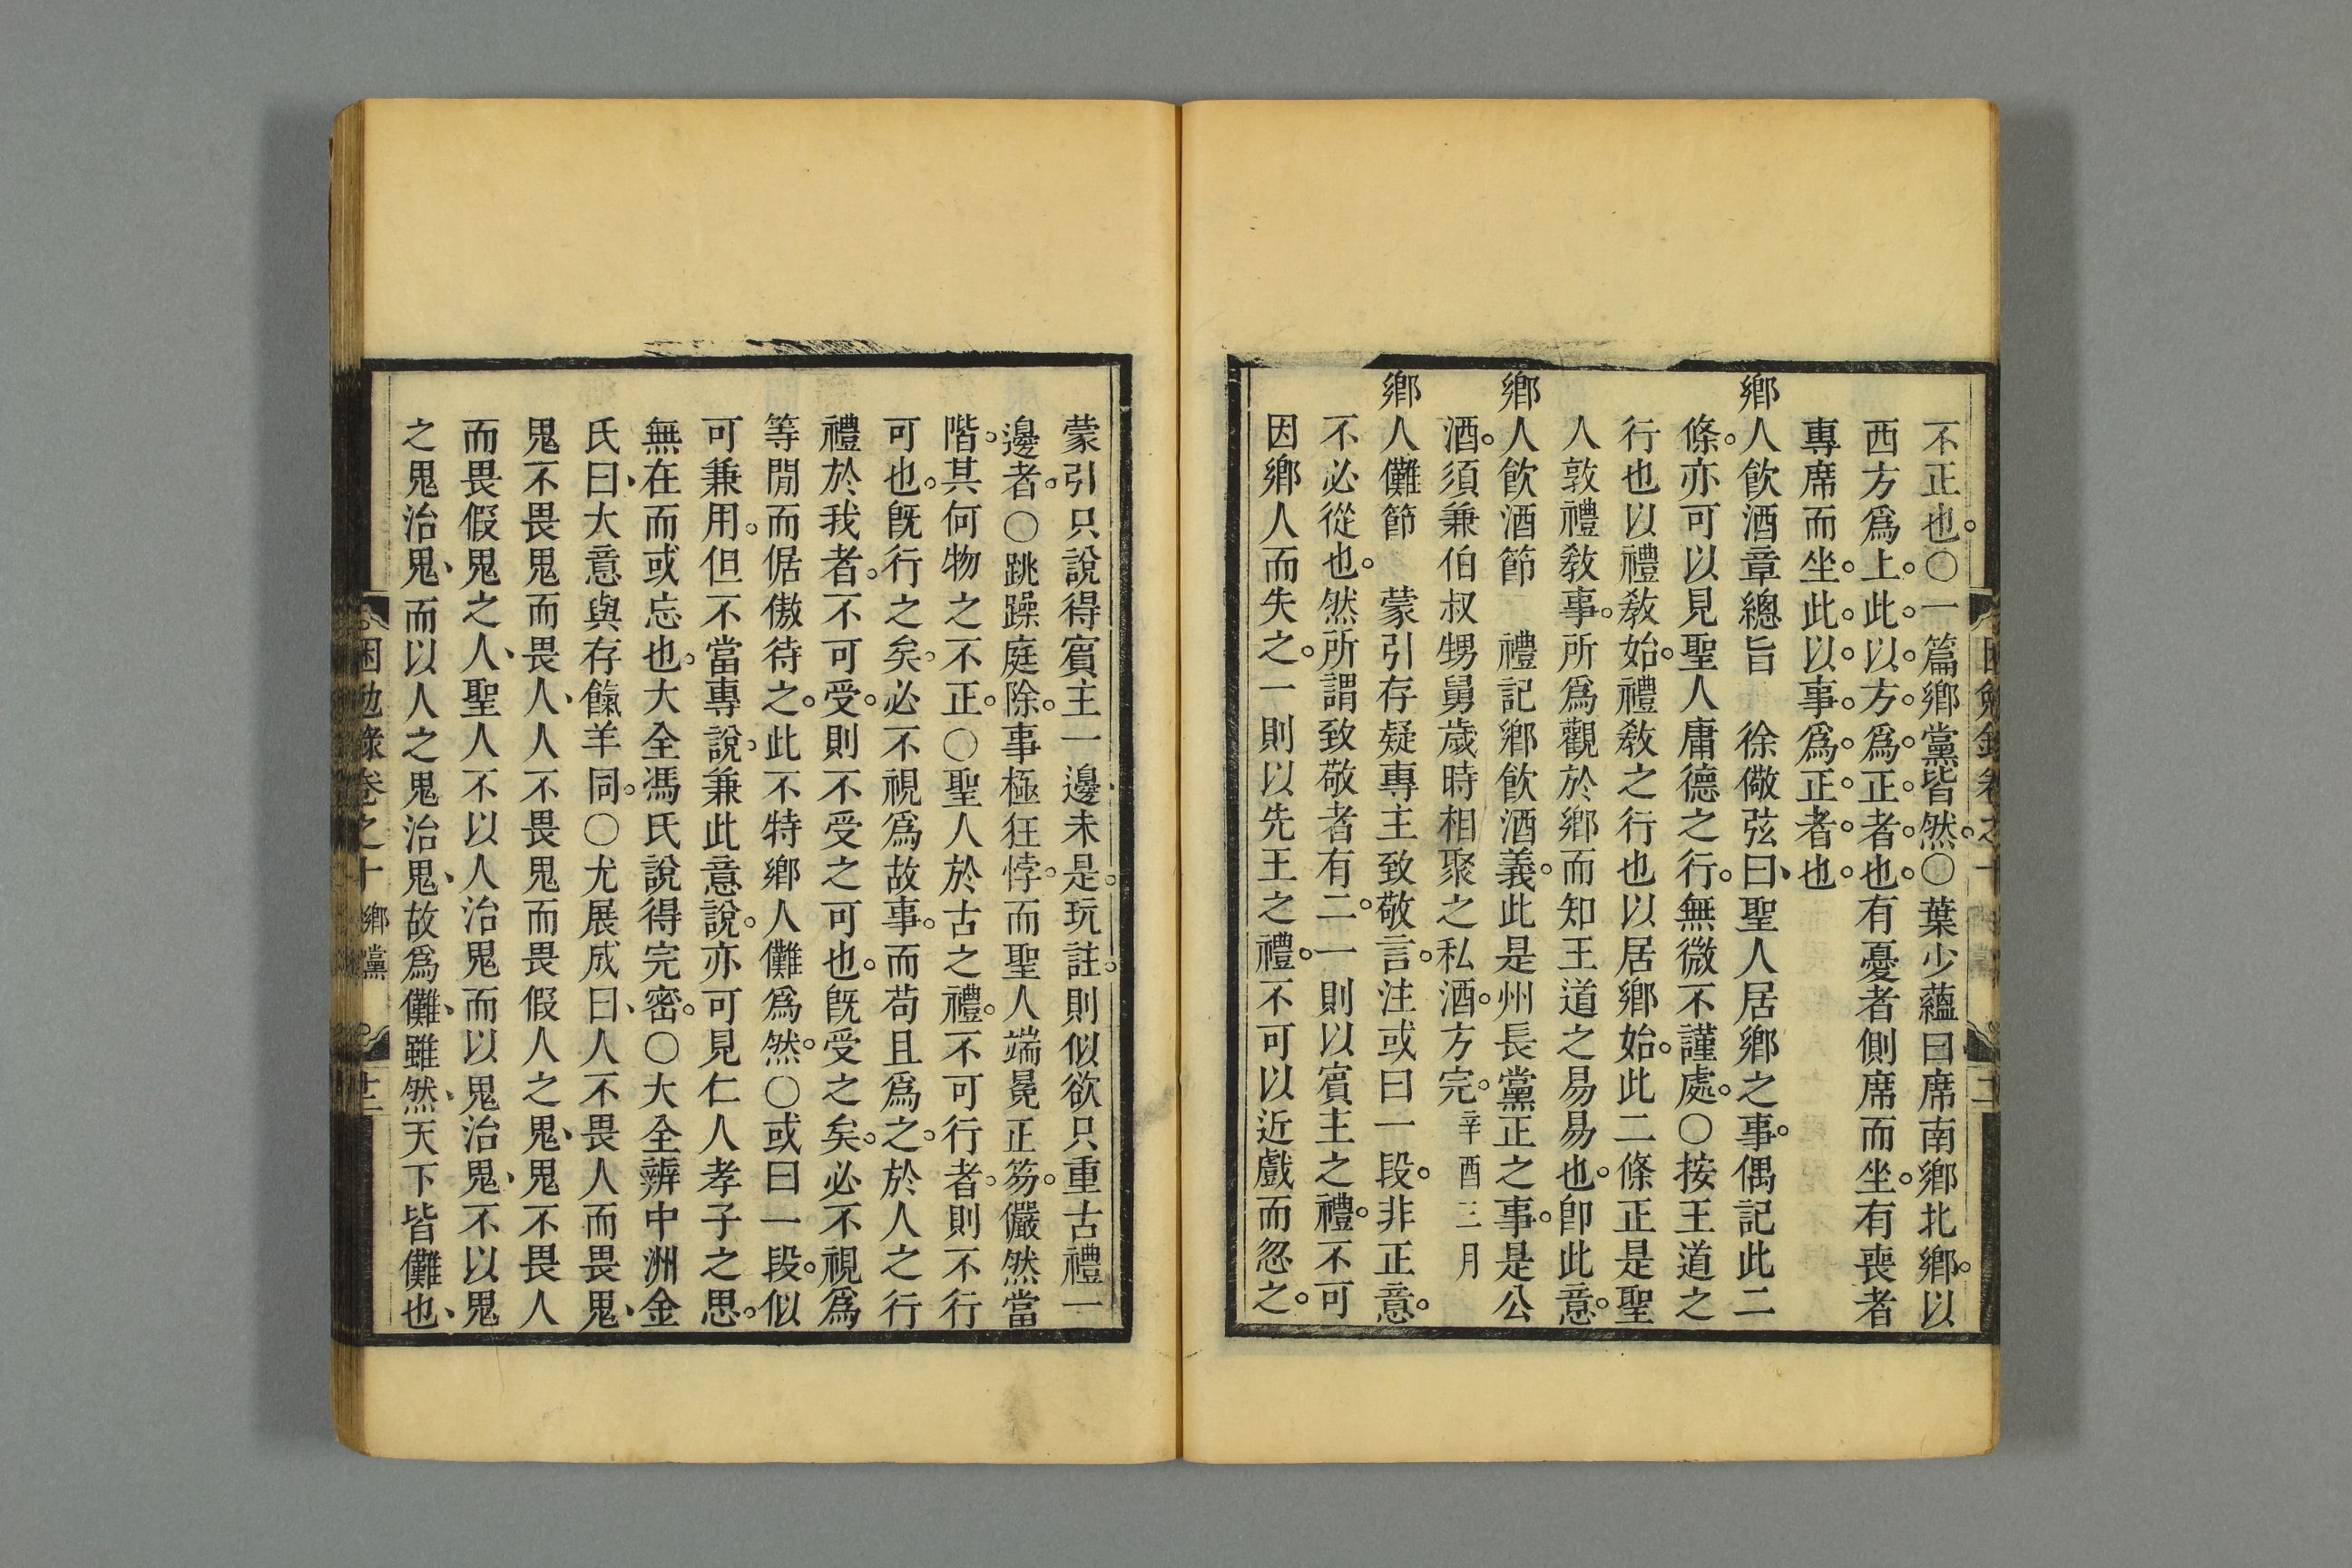 不正也。〇一篇鄉黨皆然。〇葉少蘊曰席南鄉北鄉。以
西方爲上。此以方爲正者也。有憂者側席而坐。有喪者
專席而坐。此以事爲正者也
鄉人飲酒章總旨　徐儆弦曰、聖人居鄉之事。偶記此二
條。亦可以見聖人庸德之行。無微不謹處。〇按王道之
行也以禮敎始。禮敎之行也以居鄉始。此二條正是聖
人敦禮敎事。所爲觀於鄉而知王道之易易也。卽此意。
鄉人飲酒節　禮記鄉飲酒義。此是州長黨正之事。是公
酒。須兼伯叔甥舅歲時相聚之私酒。方完。辛酉三月
鄉人儺節　蒙引存疑專主致敬言。注或曰一段。非正意。
不必從也。然所謂致敬者有二。一則以賓主之禮。不可
因鄉人而失之。一則以先王之禮。不可以近戲而忽之。
蒙引只說得賓主一邊、未是。玩註。則似欲只重古禮一
邊者。〇跳躁庭除。事極狂悖。而聖人端冕正笏。儼然當
階。其何物之不正。〇聖人於古之禮。不可行者。則不行
可也。旣行之矣。必不視爲故事。而苟且爲之。於人之行
禮於我者。不可受。則不受之可也。旣受之矣。必不視爲
等閒而倨傲待之。此不特鄉人儺爲然。〇或曰一段。似
可兼用。但不當專說。兼此意說。亦可見仁人孝子之思。
無在而或忘也。大全馮氏說得完密。〇大全辨中洲金
氏曰、大意與存餼羊同。〇尤展成曰、人不畏人而畏鬼、
鬼不畏鬼而畏人、人不畏鬼而畏假人之鬼、鬼不畏人
而畏假鬼之人、聖人不以人治鬼而以鬼治鬼、不以鬼
之鬼治鬼、而以人之鬼治鬼、故爲儺、雖然、天下皆儺也、
困勉錄卷之十　鄉黨　十二